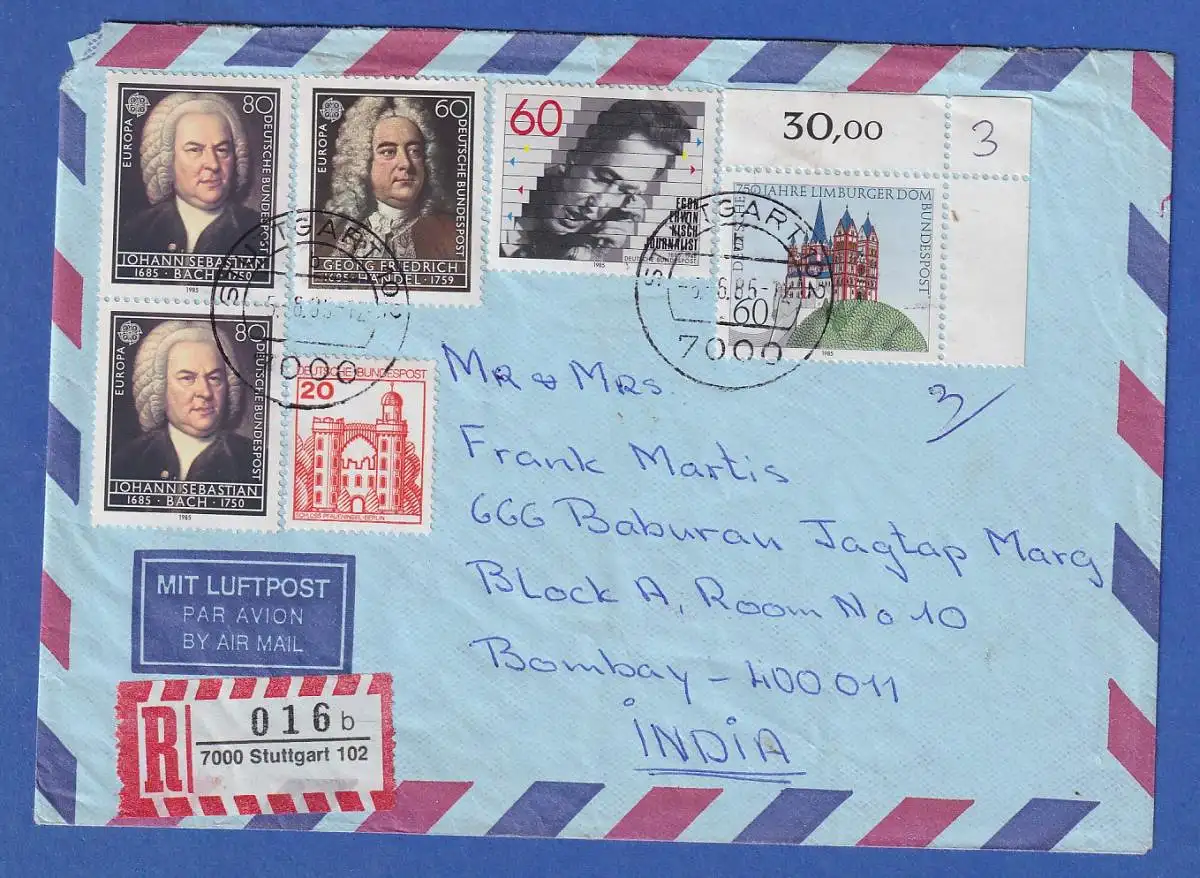 80
EUROPA
DEUTSCHE BUNDESPOST
JOHANN SEBASTIAN
1685 · BACH · 1750
1985
60
EUROPA
DEUTSCHE BUNDESPOST
GEORG FRIEDRICH
1685 · HÄNDEL · 1759
60
EGON
ERWIN
KISCH
JOURNALIST
DEUTSCHE BUNDESPOST
1985
30,00
3
750 JAHRE LIMBURGER DOM
DEUTSCHE
BUNDESPOST
60
1985
STUTTGART 102
7000
STUTTGART 102
7000
80
EUROPA
DEUTSCHE BUNDESPOST
JOHANN SEBASTIAN
1685 · BACH · 1750
1985
DEUTSCHE BUNDESPOST
20
SCHLOSS PFAUENINSEL · BERLIN
3/
Mr & Mrs.
Frank Martis
666 Baburau Jagtap Marg
Block A, Room No 10
Bombay - 400 011
INDIA
MIT LUFTPOST
PAR AVION
BY AIR MAIL
R
016 b
7000 Stuttgart 102